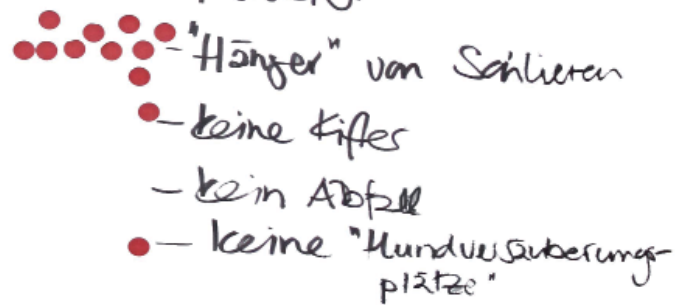 - "Hänger" von Schlieren
- keine Kiffer
- kein Abfall
- keine "Hundversäuberungs-
plätze"